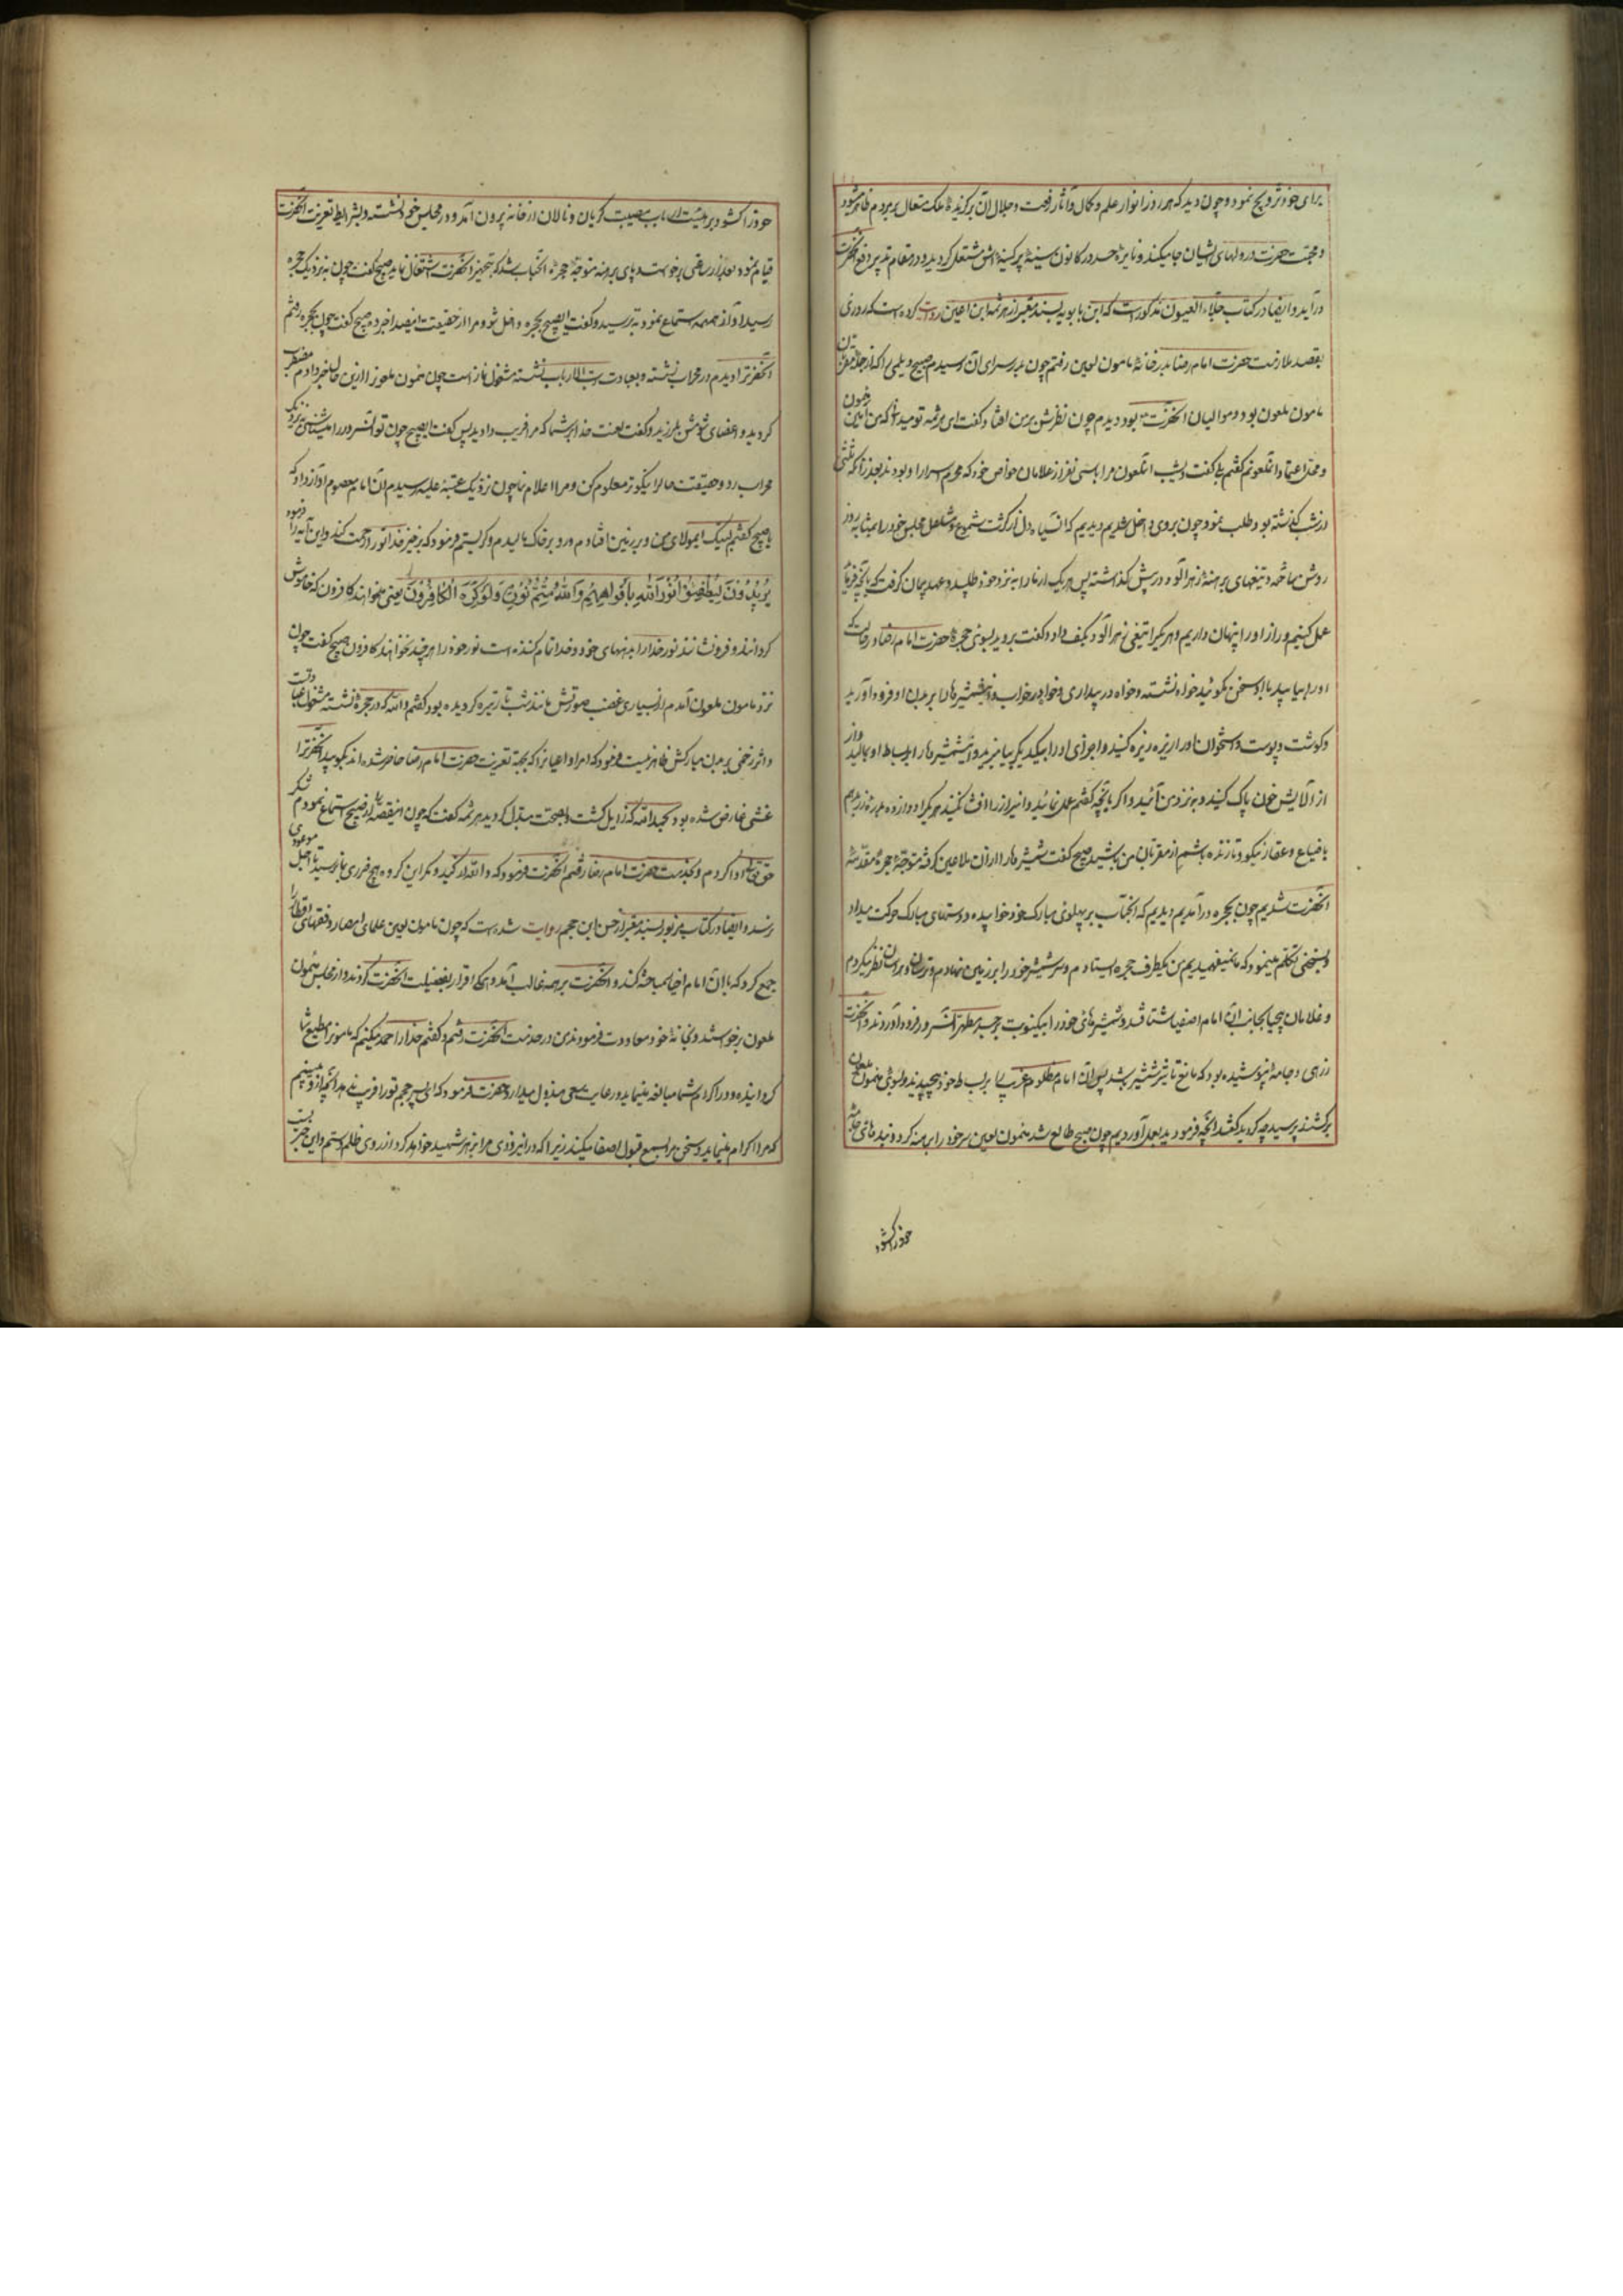 برای خود تزویج نمود و چون دید که هر روز انوار علم و کمال و آثار رفعت و جلال آن برگزیدهٔ ملک متعال بر مردم ظاهر میشود
و محبت حضرت در دلهای ایشان جا میکند و نایرهٔ حسد در کانون سینهٔ پر کینه اش مشتعل گردید و در مقام تدبیر دفع آنحضرت
درآید و ایضا در کتاب جلاء العیون مذکور است که ابن بابویه بسند معتبر از هرثمه ابن اعین روایت کرده است که روزی
بقصد ملازمت حضرت امام رضا بدر خانهٔ مامون لعین رفتم چون بدر سرای آن رسیدم صبیح دیلمی را که از جملهٔ مقربان
مامون ملعون بود و موالیان آنحضرت بود دیدم چون نظرش بر من افتاد گفت ای هرثمه تو میدانی که من امین مامون
و محل اعتماد آنملعونم گفتم بلی گفت دیشب آنملعون مرا با سی نفر از غلامان خواص خود که محرم اسرار او بودند بعد از آنکه ثلثی
از شب گذشته بود طلب نمود چون بر وی داخل شدیم دیدیم که آن سیاه دل از کثرت شموع و مشاعل مجلس خود را بمثابه روز
روشن ساخته و تیغهای برهنهٔ زهر آلود در پیش گذاشته پس هر یک از ما را به نزد خود طلبید و عهد و پیمان گرفت که بآنچه فرمایم
عمل کنیم و راز او را پنهان داریم و هر یکرا تیغی زهر آلود بکف داد و گفت بروید بسوی حجرهٔ حضرت امام رضا و در حالت که
او را بیابید با او سخن مگوئید خواه نشسته و خواه در بیداری و خواه در خواب و این شمشیرها را بر بدن او فرود آورید
و گوشت و پوست و استخوان او را ریزه ریزه کنید و اجزای او را بیکدیگر بیامیزید و این شمشیرها را بر بساط او بمالید و از
از آلایش خون پاک کنید و به نزد من آئید و اگر بآنچه گفتم عمل نمائید و این راز را افشا نکنید هر یکرا دوازده بدره زر بدهم
با ضیاع و عقار نیکو و تا زنده باشم از مقربان من باشید صبیح گفت شمشیرها را از آن ملاعین گرفته متوجهٔ حجرهٔ مقدسهٔ
آنحضرت شدیم چون بحجره درآمدیم دیدیم که آنجناب بر پهلوی مبارک خود خوابیده و دستهای مبارک حرکت میداد
و بسخنی تکلم مینمود که ما نمیفهمیدیم من بکطرف حجره ایستادم و سر شمشیر خود را بر زمین نهادم و ترسان و هراسان نظر میکردم
و غلامان بیحیا بجانب آن امام اصفیا شتافتند و شمشیرهای خود را بیکنوبت بر جسد مطهر آنسرور فرود آوردند و آنحضرت
زرهی و جامهٔ نپوشیده بود که مانع تاثیر شمشیر باشد پس آن امام مظلوم غریب را بر بساط خود پیچیدند و بسوی مامون ملعون
برگشتند پرسید چه کردید گفتند آنچه فرمودید بعمل آوردیم چون صبح طالع شد مامون لعین سر خود را برهنه کرد و بندهای جامهٔ
خود را گشود
خود را گشود بر هیئت ارباب مصیبت گریان و نالان از خانه بیرون آمد و در مجلس خود نشسته و بشرایط تعزیت آنحضرت
قیام نمود بعد از ساعتی برخواست و پای برهنه متوجهٔ حجرهٔ آنجناب شد که بتجهیز آنحضرت اشتغال نماید صبیح گفت چون به نزدیک حجره
رسید آواز همهمه استماع نمود بترسید و گفت ای صبیح بحجره داخل شو و مرا از حقیقت اینصدا خبر ده صبیح گفت چون بحجره رفتم
آنحضرترا دیدم در محراب نشسته و بعبادت رب الارباب نشسته مشغول نماز است چون مامون ملعونرا ازین حال خبر دادم مضطرب
گردید و اعضای شومش بلرزید و گفت لعنت خدا بر شما که مرا فریب دادید پس گفت ای صبیح چون تو آنسرور را میشناسی نزدیک
محراب رو و حقیقت حال را نیکوتر معلوم کن و مرا اعلام نما چون نزدیک عتبهٔ علیه رسیدم آن امام معصوم آواز داد که
یا صبیح گفتم لبیک ایمولای من و بر زمین افتادم و رو بر خاک مالیدم و گریستم فرمود که برخیز خدا تو را رحمت کند و این آیه را فرمود
یُرِیدُونَ لِیُطْفِئُوا نُورَ اللّٰهِ بِأَفْوَاهِهِمْ وَاللّٰهُ مُتِمُّ نُورِهِ وَلَوْ کَرِهَ الْکَافِرُونَ یعنی میخواهند کافرون که خاموش
گردانند و فرونشانند نور خدا را بدهنهای خود و خدا تمام کننده است نور خود را هر چند نخواهند کافرون صبیح گفت چون
نزد مامون ملعون آمدم از بسیاری غضب صورتش مانند شب تار تیره گردیده بود گفتم والله که در حجرهٔ نشسته مشغول عبادتست
و اثر زخمی بر بدن مبارکش ظاهر نیست فرمود که امرا و اعیانرا که بجهة تعزیت حضرت امام رضا حاضر شده اند بگویید آنحضرترا
غشی عارض شده بود بحمد الله که زایل گشت و بصحت مبدل گردید هرثمه گفت که چون اینقصه را از صبیح استماع نمودم شکر
حق تعالی ادا کردم و بخدمت حضرت امام رضا رفتم آنحضرت فرمود که والله از کید و مکر این گروه هیچ ضرری بما نرسد تا اجل موعود
رسد و ایضا در کتاب مزبور بسند معتبر از حسن ابن جهم روایت شده است که چون مامون لعین علمای امصار و فقهای اقطار را
جمع کرد که با آن امام اخیار مباحثه کنند و آنحضرت بر همه غالب آمد و همگی اقرار بفضیلت آنحضرت کردند و از مجلس مامون
ملعون برخواستند و بخانهٔ خود معاودت فرمودند من در خدمت آنحضرت رفتم و گفتم خدا را حمد میکنم که مامونرا مطیع شما
گردانیده و در اکرام شما مبالغه مینماید و رعایت سعی مبذول میدارد حضرت فرمود که ای پسر جهم تو را فریب ندهد آنچه از او میبینم
که مرا اکرام مینماید و سخن مرا بسمع قبول اصغا میکند زیرا که در این زودی مرا بزهر شهید خواهد کرد از روی ظلم و ستم و این خبریست